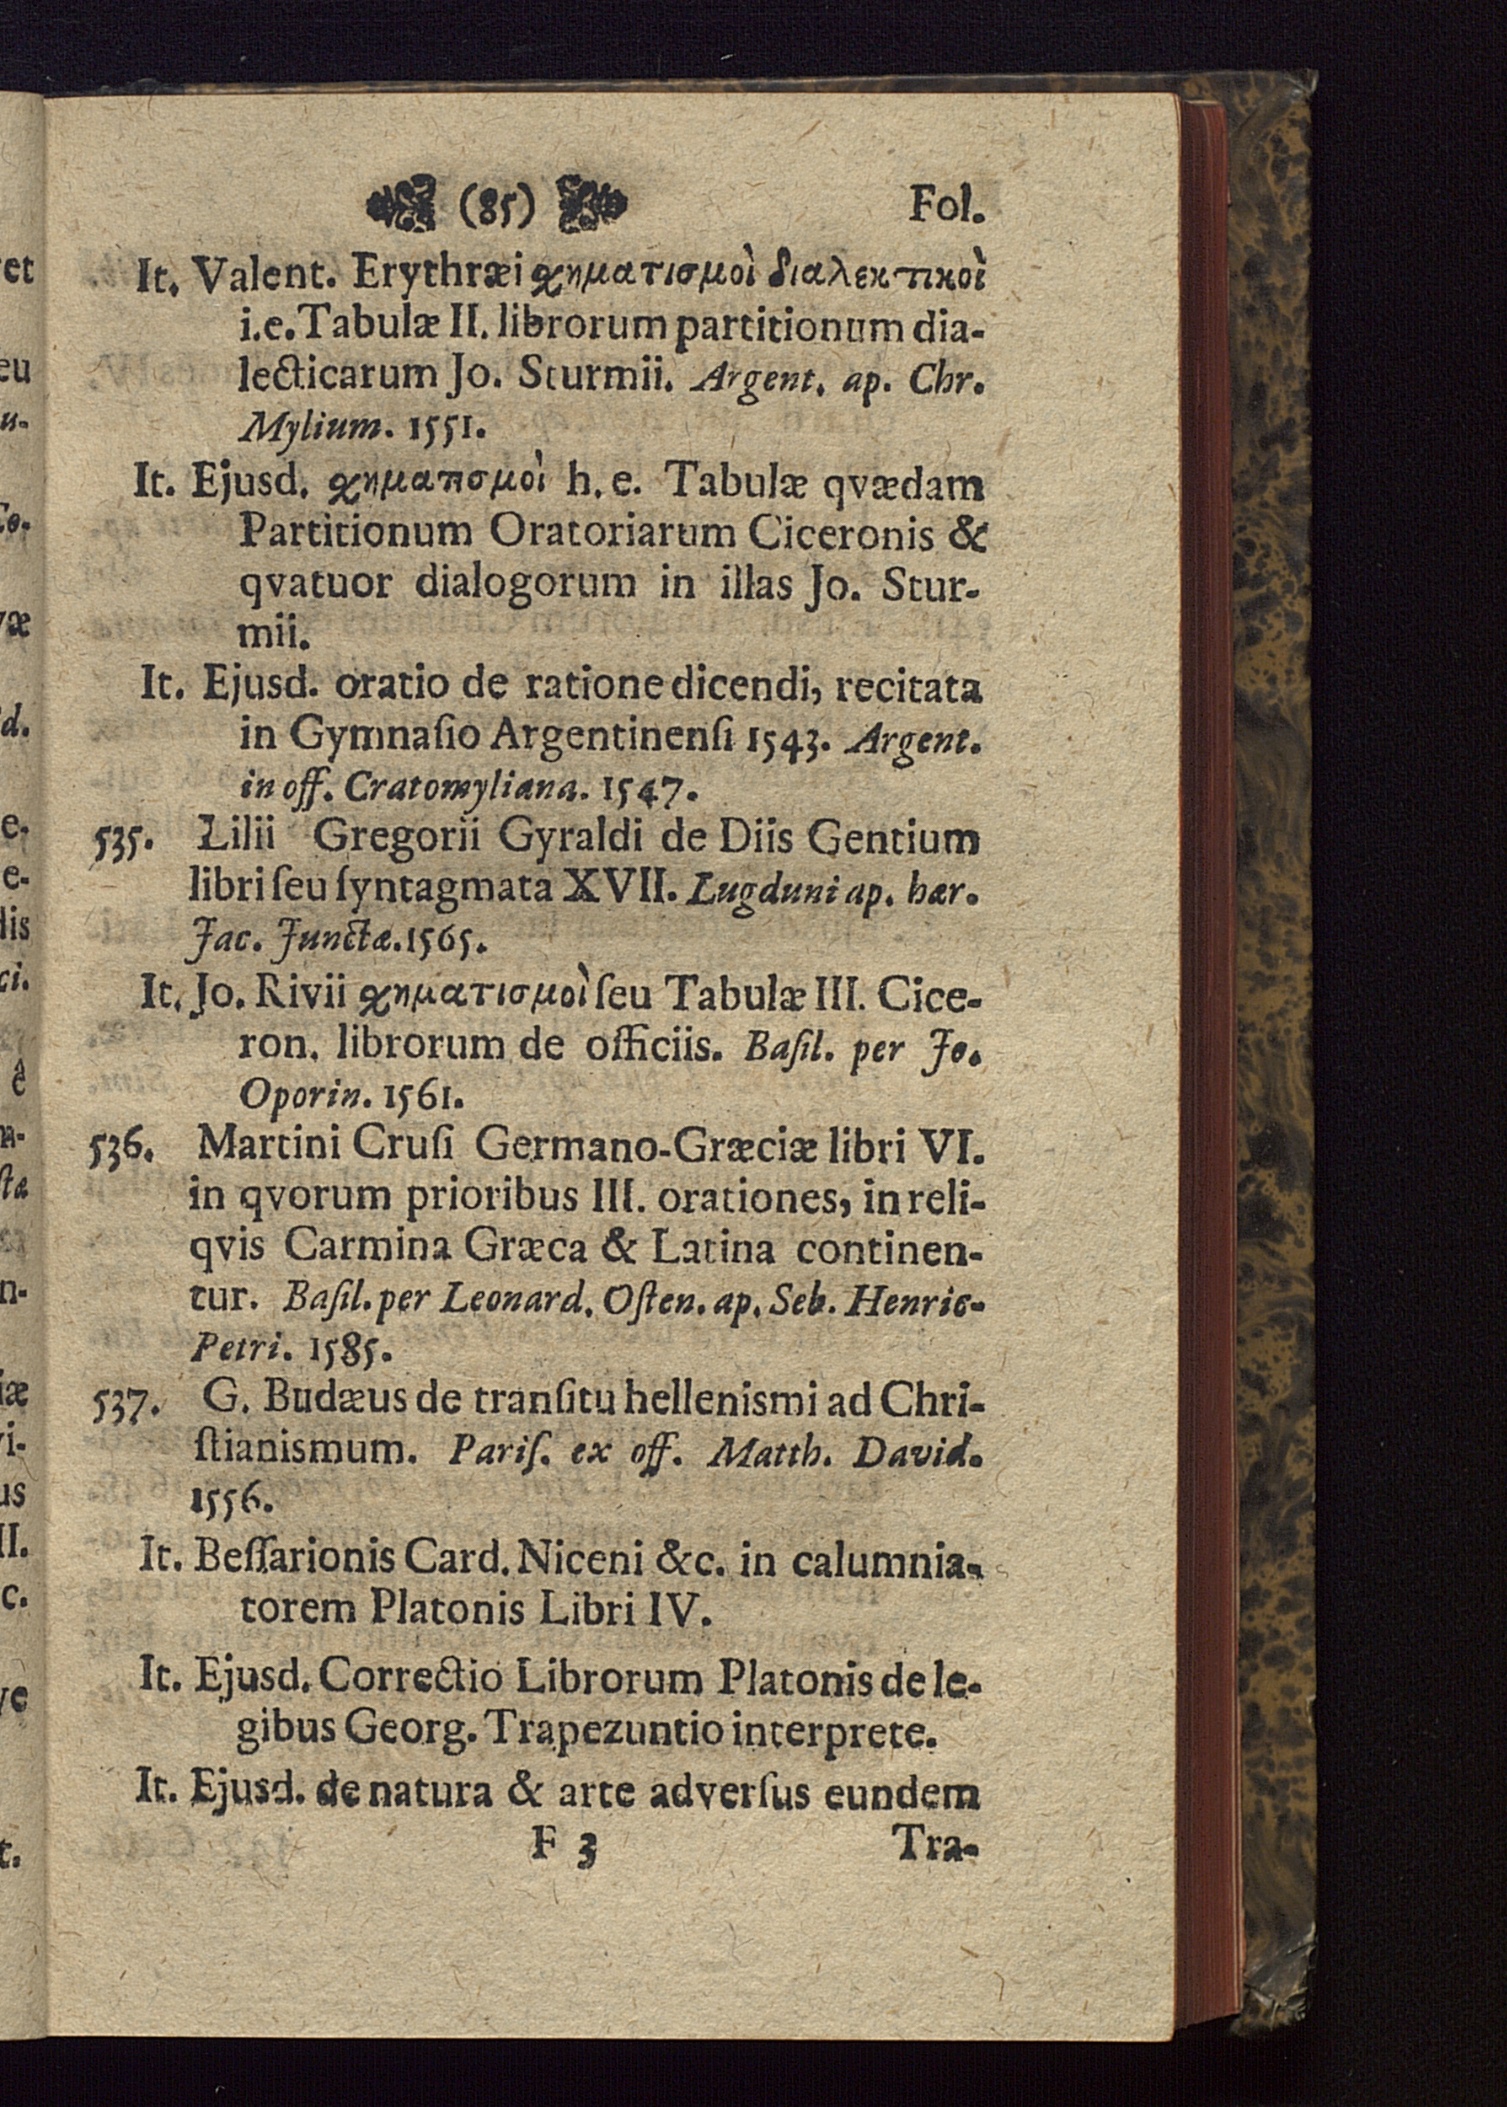 (85) Fol.
It. Valent. Erythræi σχηματισμοὶ διαλεκτικοὶ
i.e. Tabulæ II. librorum partitionum dia-
lecticarum Jo. Sturmii. Argent. ap. Chr.
Mylium. 1551.
It. Ejusd. σχηματισμοὶ h. e. Tabulæ qvædam
Partitionum Oratoriarum Ciceronis &
qvatuor dialogorum in illas Jo. Stur-
mii.
It. Ejusd. oratio de ratione dicendi, recitata
in Gymnaſio Argentinenſi 1543. Argent.
in off. Cratomyliana. 1547.
535. Lilii Gregorii Gyraldi de Diis Gentium
libri ſeu ſyntagmata XVII. Lugduni ap. hær.
Jac. Junctæ. 1565.
It. Jo. Rivii σχηματισμοὶ ſeu Tabulæ III. Cice-
ron. librorum de officiis. Baſil. per Jo.
Oporin. 1561.
536. Martini Cruſi Germano-Græciæ libri VI.
in qvorum prioribus III. orationes, in reli-
qvis Carmina Græca & Latina continen-
tur. Baſil. per Leonard. Oſten. ap. Seb. Henric-
Petri. 1585.
537. G. Budæus de tranſitu hellenismi ad Chri-
ſtianismum. Pariſ. ex off. Matth. David.
1556.
It. Beſſarionis Card. Niceni &c. in calumnia-
torem Platonis Libri IV.
It. Ejusd. Correctio Librorum Platonis de le-
gibus Georg. Trapezuntio interprete.
It. Ejusd. de natura & arte adverſus eundem
F 3 Tra-